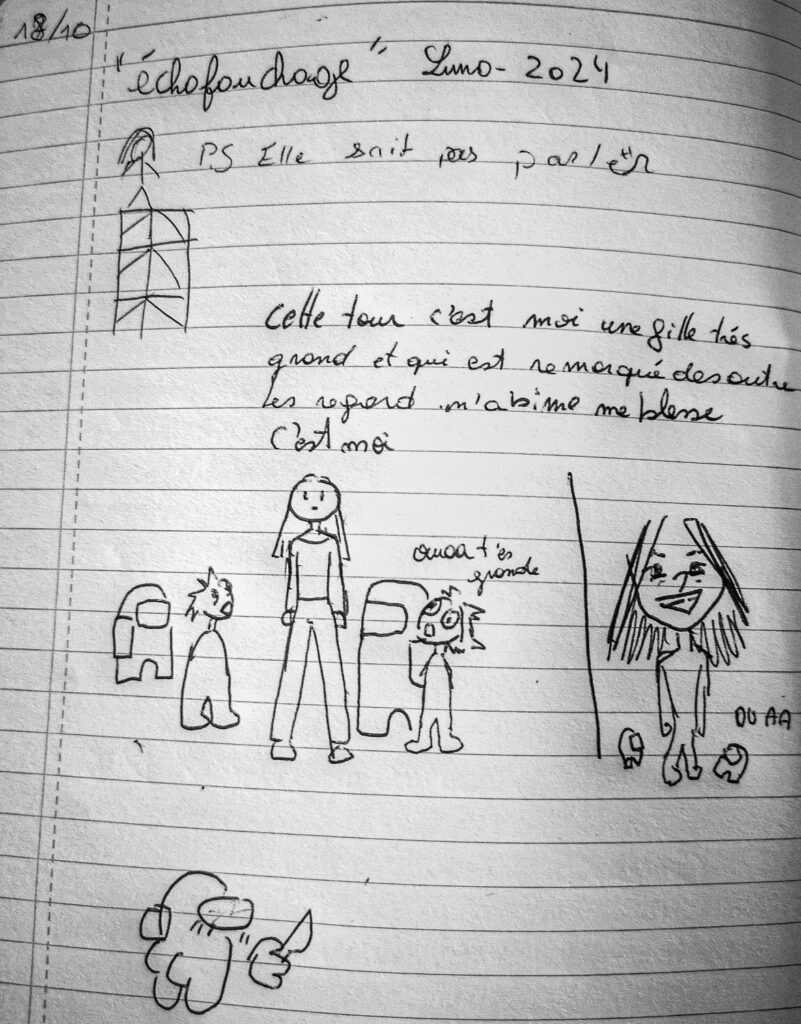 18/10
"échofouchage" Luno- 2024
PS Elle sait pas parler
Cette tour c'est moi une fille trés
grand et qui est remarqué des autre
les regard m'abime me blesse
C'est moi
ouaa t'es
grande
OUAA